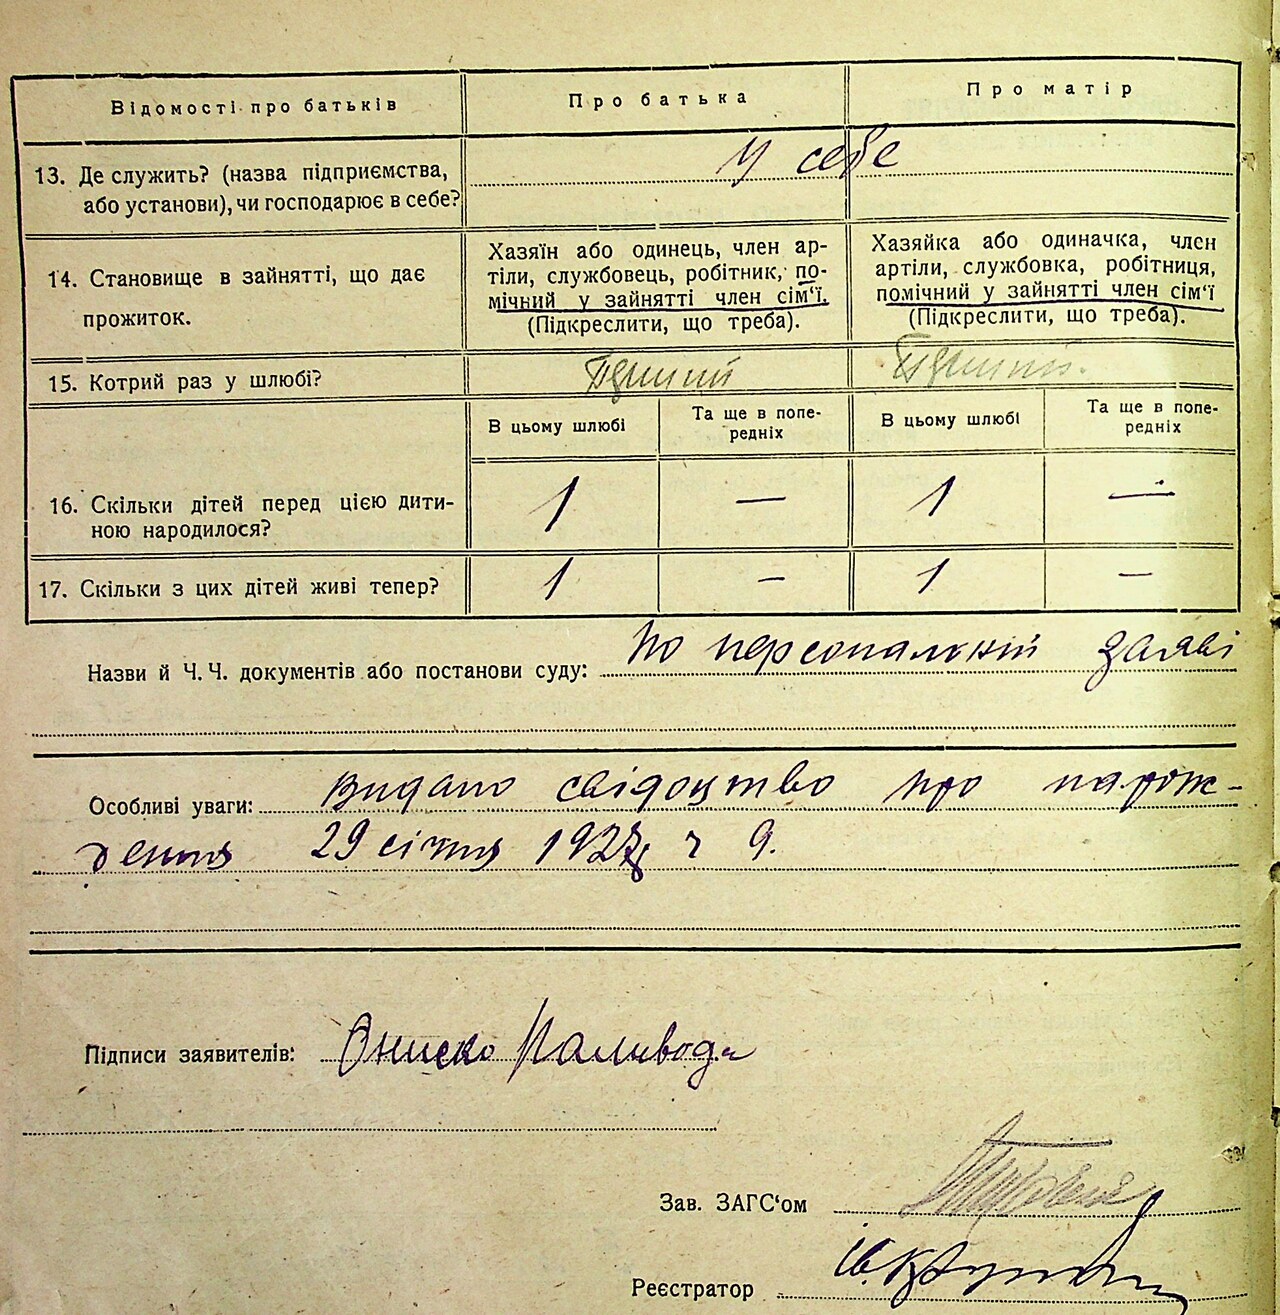 Відомості про батьків
Про батька
Про матір
13. Де служить? (назва підприємства,
або установи), чи господарює в себе?
У себе
14. Становище в зайнятті, що дає
прожиток.
Хазяїн або одинець, член ар-
тіли, службовець, робітник, по-
мічний у зайнятті член сім‘ї.
(Підкреслити, що треба).
Хазяйка або одиначка, член
артіли, службовка, робітниця,
помічний у зайнятті член сім‘ї
(Підкреслити, що треба).
15. Котрий раз у шлюбі?
В цьому шлюбі
Та ще в попе-
редніх
В цьому шлюбі
Та ще в попе-
редніх
16. Скільки дітей перед цією дити-
ною народилося?
1 — 1 —
17. Скільки з цих дітей живі тепер?
1 — 1 —
Назви й Ч. Ч. документів або постанови суду: по персональній заяві
Особливі уваги: Видано свідоцтво про нарож-
дення 29 січня 1927 ч 9.
Підписи заявителів: Ониско Паливода
Зав. ЗАГС‘ом
Реєстратор